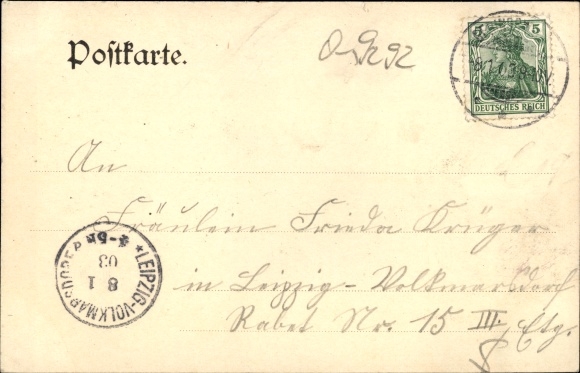 Postkarte.
5 5
DEUTSCHES REICH
An
Fräulein Frieda Krüger
in Leipzig-Volkmarsdorf
Rabet Nr. 15 III. Etg.
*LEIPZIG-VOLKMARSDORF*
8 1
03